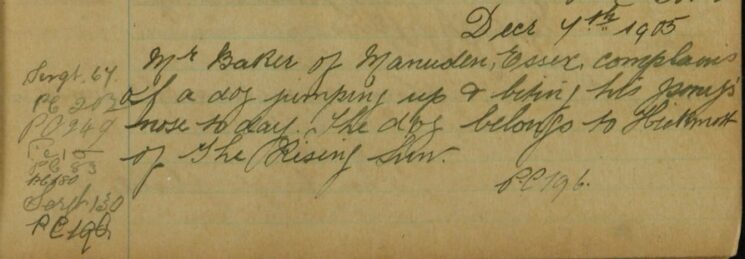 Decr 4th 1905
Mr Baker of Manuden, Essex, complains
of a dog jumping up & biting his pony's
nose to day. The dog belongs to Hickmott
of The Rising Sun.
P.C 196.
Sergt. 67.
PC 203
PC 249
PC 83
PC 180
Sergt 130
PC 196